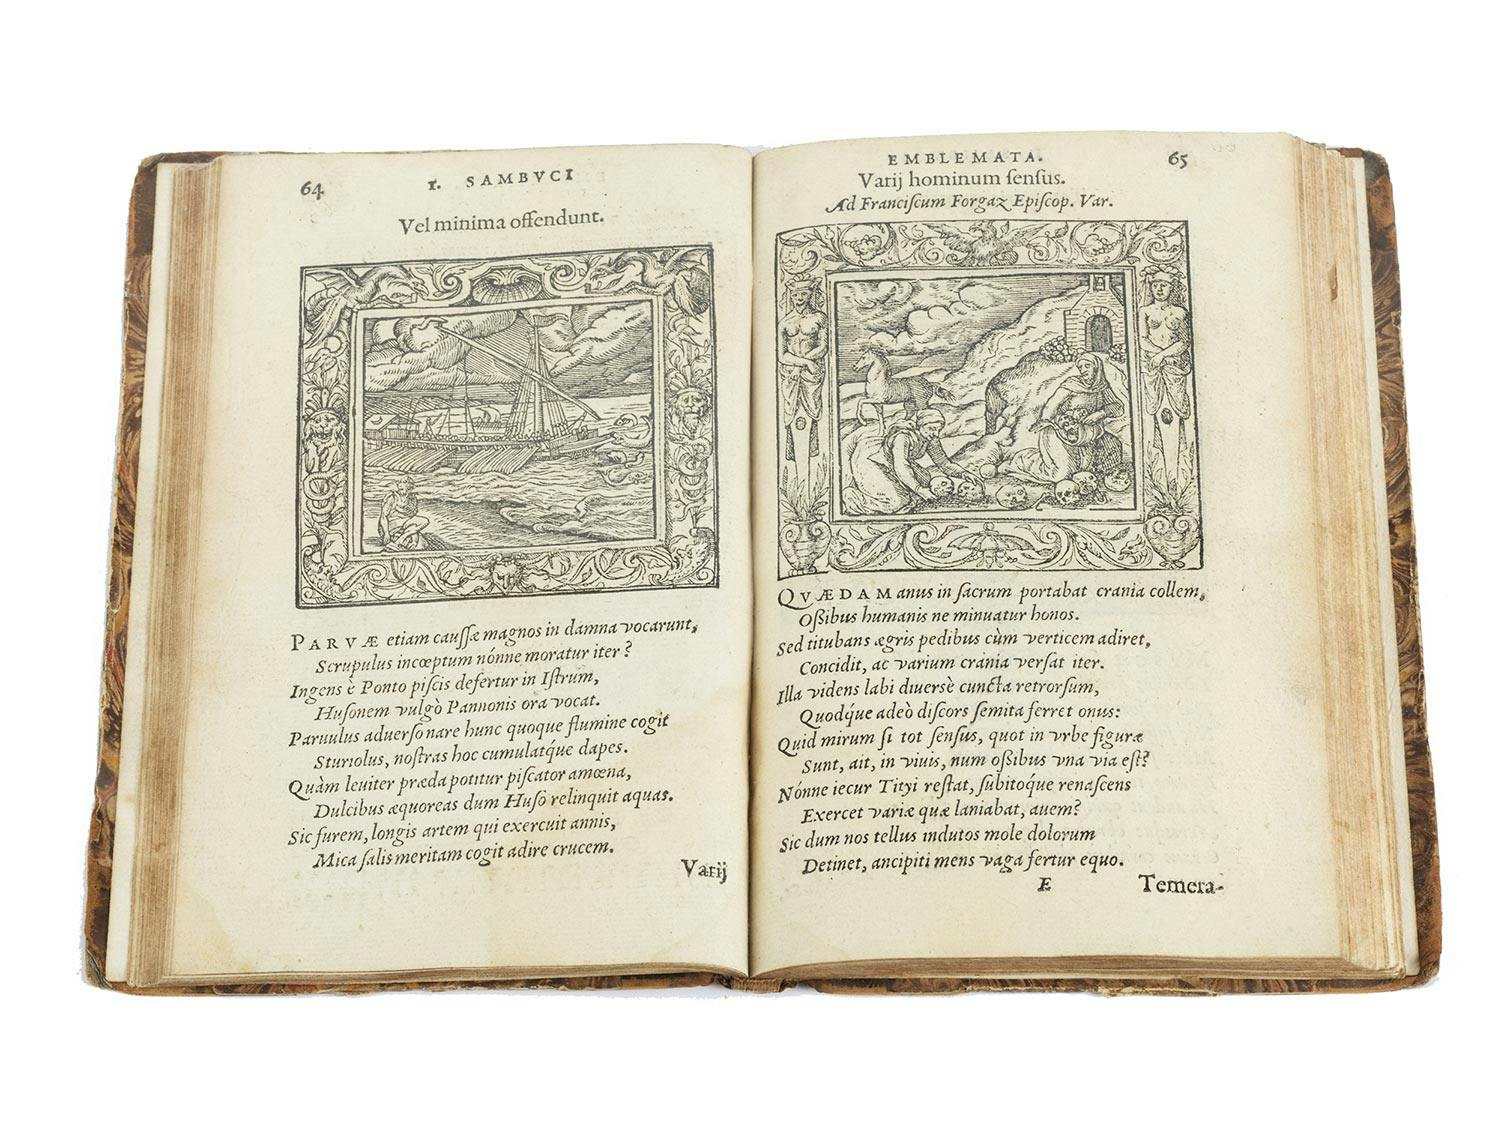 64
I. SAMBVCI
Vel minima offendunt.
PARVÆ etiam cauſſæ magnos in damna vocarunt,
Scrupulus incœptum nónne moratur iter?
Ingens è Ponto piſcis defertur in Iſtrum,
Huſonem vulgò Pannonis ora vocat.
Paruulus aduerſo nare hunc quoque flumine cogit
Sturiolus, noſtras hoc cumulatq́ue dapes.
Quàm leuiter præda potitur piſcator amœna,
Dulcibus æquoreas dum Huſo relinquit aquas.
Sic furem, longis artem qui exercuit annis,
Mica ſalis meritam cogit adire crucem.
Varij
EMBLEMATA.
65
Varij hominum ſenſus.
Ad Franciſcum Forgaz Epiſcop. Var.
QVÆDAM anus in ſacrum portabat crania collem,
Oſſibus humanis ne minuatur honos.
Sed titubans ægris pedibus cùm verticem adiret,
Concidit, ac varium crania verſat iter.
Illa videns labi diuerſè cuncta retrorſum,
Quodq́ue adeò diſcors ſemita ferret onus:
Quid mirum ſi tot ſenſus, quot in vrbe figuræ
Sunt, ait, in viuis, num oſſibus vna via eſt?
Nónne iecur Tityi reſtat, ſubitoq́ue renaſcens
Exercet variæ quæ laniabat, auem?
Sic dum nos tellus indutos mole dolorum
Detinet, ancipiti mens vaga fertur equo.
E
Temera-